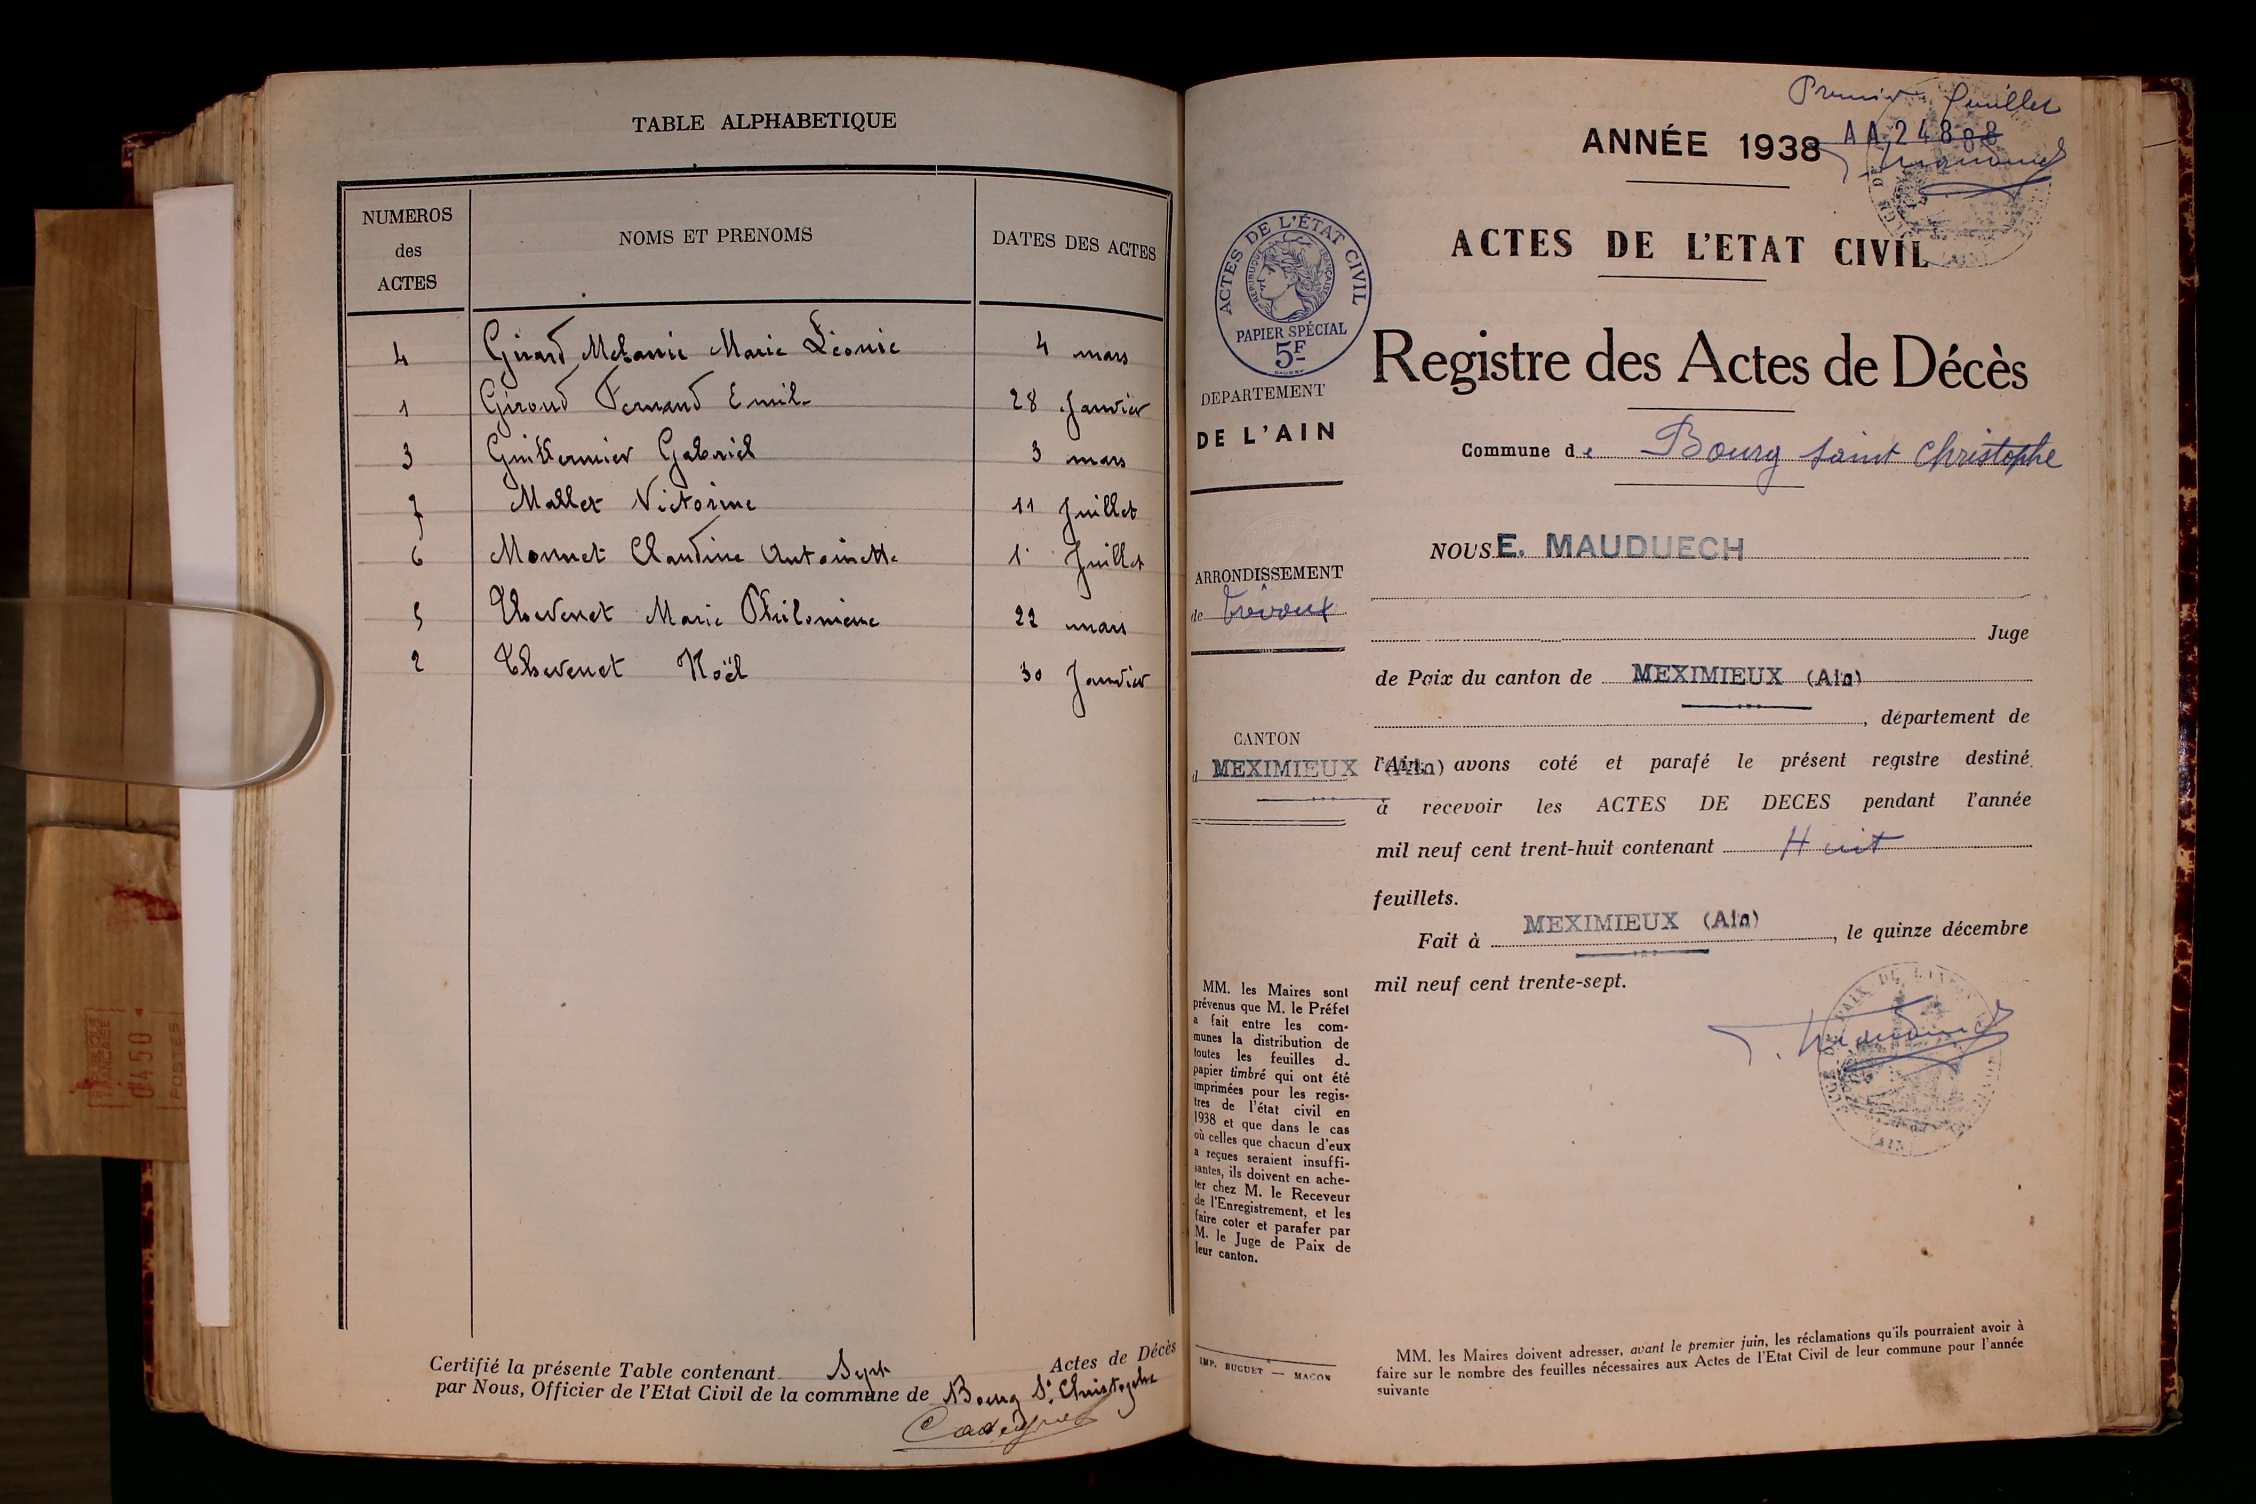 TABLE ALPHABETIQUE
NUMEROS
des
ACTES
NOMS ET PRENOMS
DATES DES ACTES
4 Girard Melanie Marie Léonie 4 mars
1 Giroud Fernand Emile 28 Janvier
3 Guillermier Gabriel 3 mars
7 Mallet Victorine 11 Juillet
6 Monnet Claudine Antoinette 1. Juillet
5 Thevenet Marie Philomène 22 mars
2 Thevenet Noël 30 Janvier
Certifié la présente Table contenant Sept Actes de Décès
par Nous, Officier de l'Etat Civil de la commune de Bourg St. Christophe
Premier feuillet
ANNÉE 1938
ACTES DE L'ETAT CIVIL
Registre des Actes de Décès
Commune de Bourg Saint Christophe
ACTES DE L'ÉTAT CIVIL
RÉPUBLIQUE FRANÇAISE
PAPIER SPÉCIAL
5F
DEPARTEMENT
DE L'AIN
ARRONDISSEMENT
de Trévoux
CANTON
d MEXIMIEUX (Ain)
MM. les Maires sont
prévenus que M. le Préfet
a fait entre les com-
munes la distribution de
toutes les feuilles d
papier timbré qui ont été
imprimées pour les regis-
tres de l'état civil en
1938 et que dans le cas
où celles que chacun d'eux
a reçues seraient insuffi-
santes, ils doivent en ache-
ter chez M. le Receveur
de l'Enregistrement, et les
faire coter et parafer par
M. le Juge de Paix de
leur canton.
IMP. BUGUET — MACON
NOUS E. MAUDUECH
Juge
de Paix du canton de MEXIMIEUX (Ain)
, département de
l'Ain, avons coté et parafé le présent registre destiné
à recevoir les ACTES DE DECES pendant l'année
mil neuf cent trent-huit contenant Huit
feuillets.
Fait à MEXIMIEUX (Ain), le quinze décembre
mil neuf cent trente-sept.
MM. les Maires doivent adresser, avant le premier juin, les réclamations qu'ils pourraient avoir à
faire sur le nombre des feuilles nécessaires aux Actes de l'Etat Civil de leur commune pour l'année
suivante
0450
POSTES